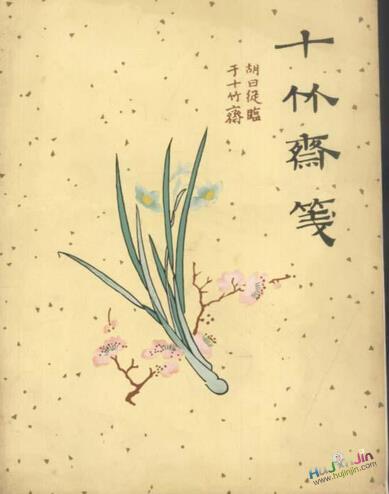 十竹齋箋
胡曰從臨
于十竹齋
HuJinJin
www.hujinjin.com